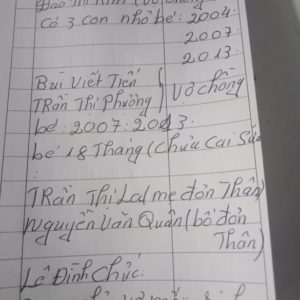 Có 3 con nhỏ bé: 2004
2007
2013
Bùi Viết Tiến
Trần Thị Phường } Vợ chồng
bé: 2007: 2013
bé 18 Tháng (Chưa Cai Sữa
Trần Thị Lal mẹ đơn Thân)
Nguyễn Văn Quân (bố đơn
Thân)
Lê Đình Chức.